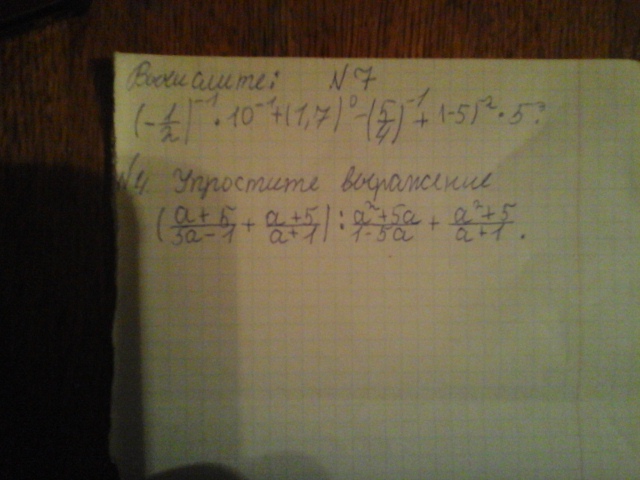 Вычислите: N7
(-1/2)^-1 · 10^-1 + (1,7)^0 - (5/4)^-1 + (-5)^-2 · 5^3
N4 Упростите выражение
((a+5)/(5a-1) + (a+5)/(a+1)) : (a^2+5a)/(1-5a) + (a^2+5)/(a+1).